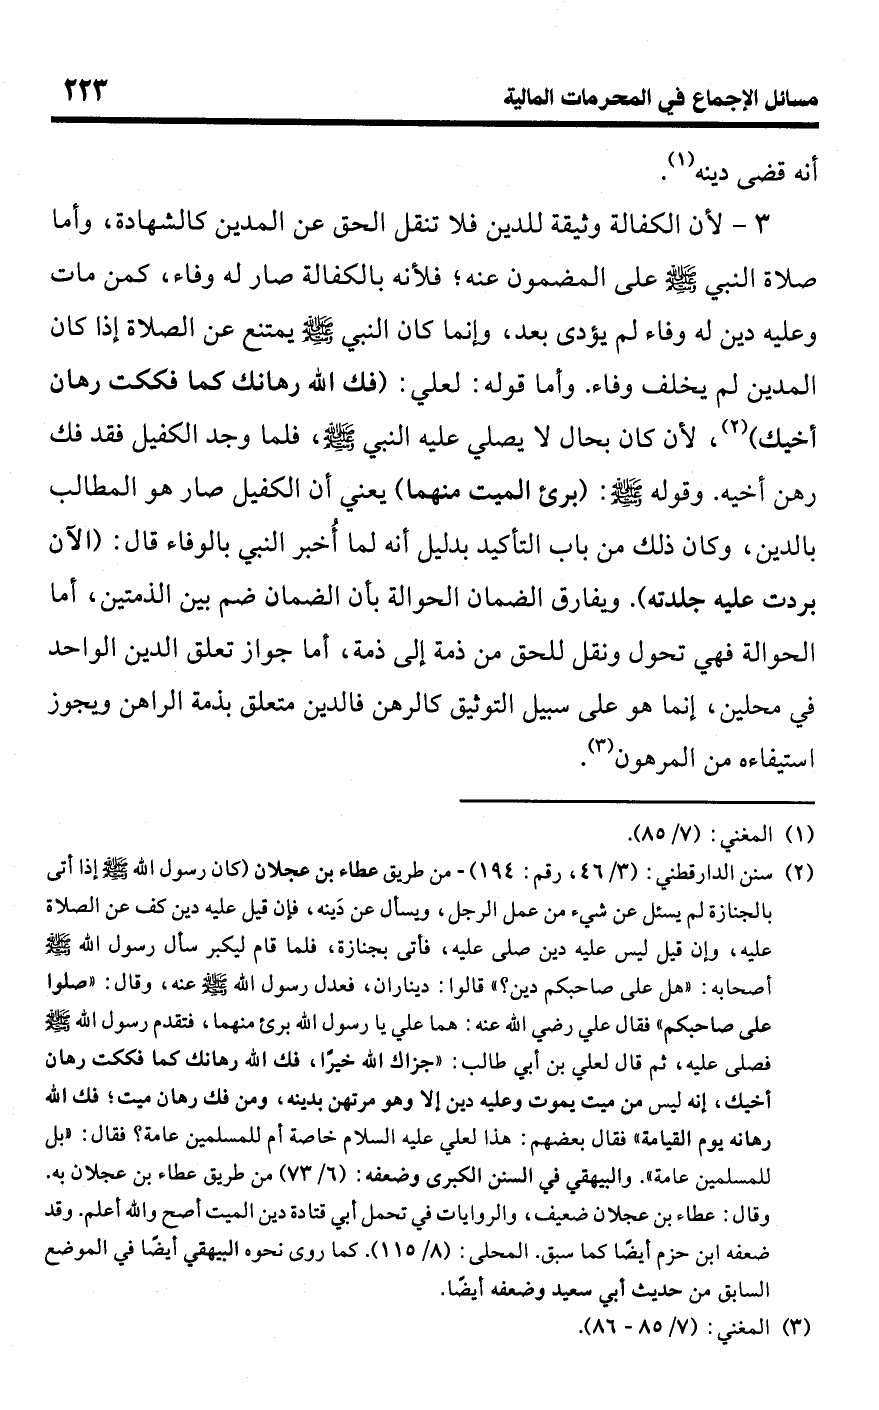 مسائل الإجماع في المحرمات المالية
٢٢٣
أنه قضى دينه(١).
٣ - لأن الكفالة وثيقة للدين فلا تنقل الحق عن المدين كالشهادة، وأما
صلاة النبي ﷺ على المضمون عنه؛ فلأنه بالكفالة صار له وفاء، كمن مات
وعليه دين له وفاء لم يؤدى بعد، وإنما كان النبي ﷺ يمتنع عن الصلاة إذا كان
المدين لم يخلف وفاء. وأما قوله: لعلي: (فك الله رهانك كما فككت رهان
أخيك)(٢)، لأن كان بحال لا يصلي عليه النبي ﷺ، فلما وجد الكفيل فقد فك
رهن أخيه. وقوله ﷺ: (برئ الميت منهما) يعني أن الكفيل صار هو المطالب
بالدين، وكان ذلك من باب التأكيد بدليل أنه لما أُخبر النبي بالوفاء قال: (الآن
بردت عليه جلدته). ويفارق الضمان الحوالة بأن الضمان ضم بين الذمتين، أما
الحوالة فهي تحول ونقل للحق من ذمة إلى ذمة، أما جواز تعلق الدين الواحد
في محلين، إنما هو على سبيل التوثيق كالرهن فالدين متعلق بذمة الراهن ويجوز
استيفاءه من المرهون(٣).
(١) المغني: (٧/ ٨٥).
(٢) سنن الدارقطني: (٣/ ٤٦، رقم: ١٩٤)- من طريق عطاء بن عجلان (كان رسول الله ﷺ إذا أتى
بالجنازة لم يسئل عن شيء من عمل الرجل، ويسأل عن دَينه، فإن قيل عليه دين كف عن الصلاة
عليه، وإن قيل ليس عليه دين صلى عليه، فأتى بجنازة، فلما قام ليكبر سأل رسول الله ﷺ
أصحابه: «هل على صاحبكم دين؟» قالوا: ديناران، فعدل رسول الله ﷺ عنه، وقال: «صلوا
على صاحبكم» فقال علي رضي الله عنه: هما علي يا رسول الله برئ منهما، فتقدم رسول الله ﷺ
فصلى عليه، ثم قال لعلي بن أبي طالب: «جزاك الله خيرًا، فك الله رهانك كما فككت رهان
أخيك، إنه ليس من ميت يموت وعليه دين إلا وهو مرتهن بدينه، ومن فك رهان ميت؛ فك الله
رهانه يوم القيامة» فقال بعضهم: هذا لعلي عليه السلام خاصة أم للمسلمين عامة؟ فقال: «بل
للمسلمين عامة». والبيهقي في السنن الكبرى وضعفه: (٦/ ٧٣) من طريق عطاء بن عجلان به.
وقال: عطاء بن عجلان ضعيف، والروايات في تحمل أبي قتادة دين الميت أصح والله أعلم. وقد
ضعفه ابن حزم أيضًا كما سبق. المحلى: (٨/ ١١٥). كما روى نحوه البيهقي أيضًا في الموضع
السابق من حديث أبي سعيد وضعفه أيضًا.
(٣) المغني: (٧/ ٨٥ - ٨٦).